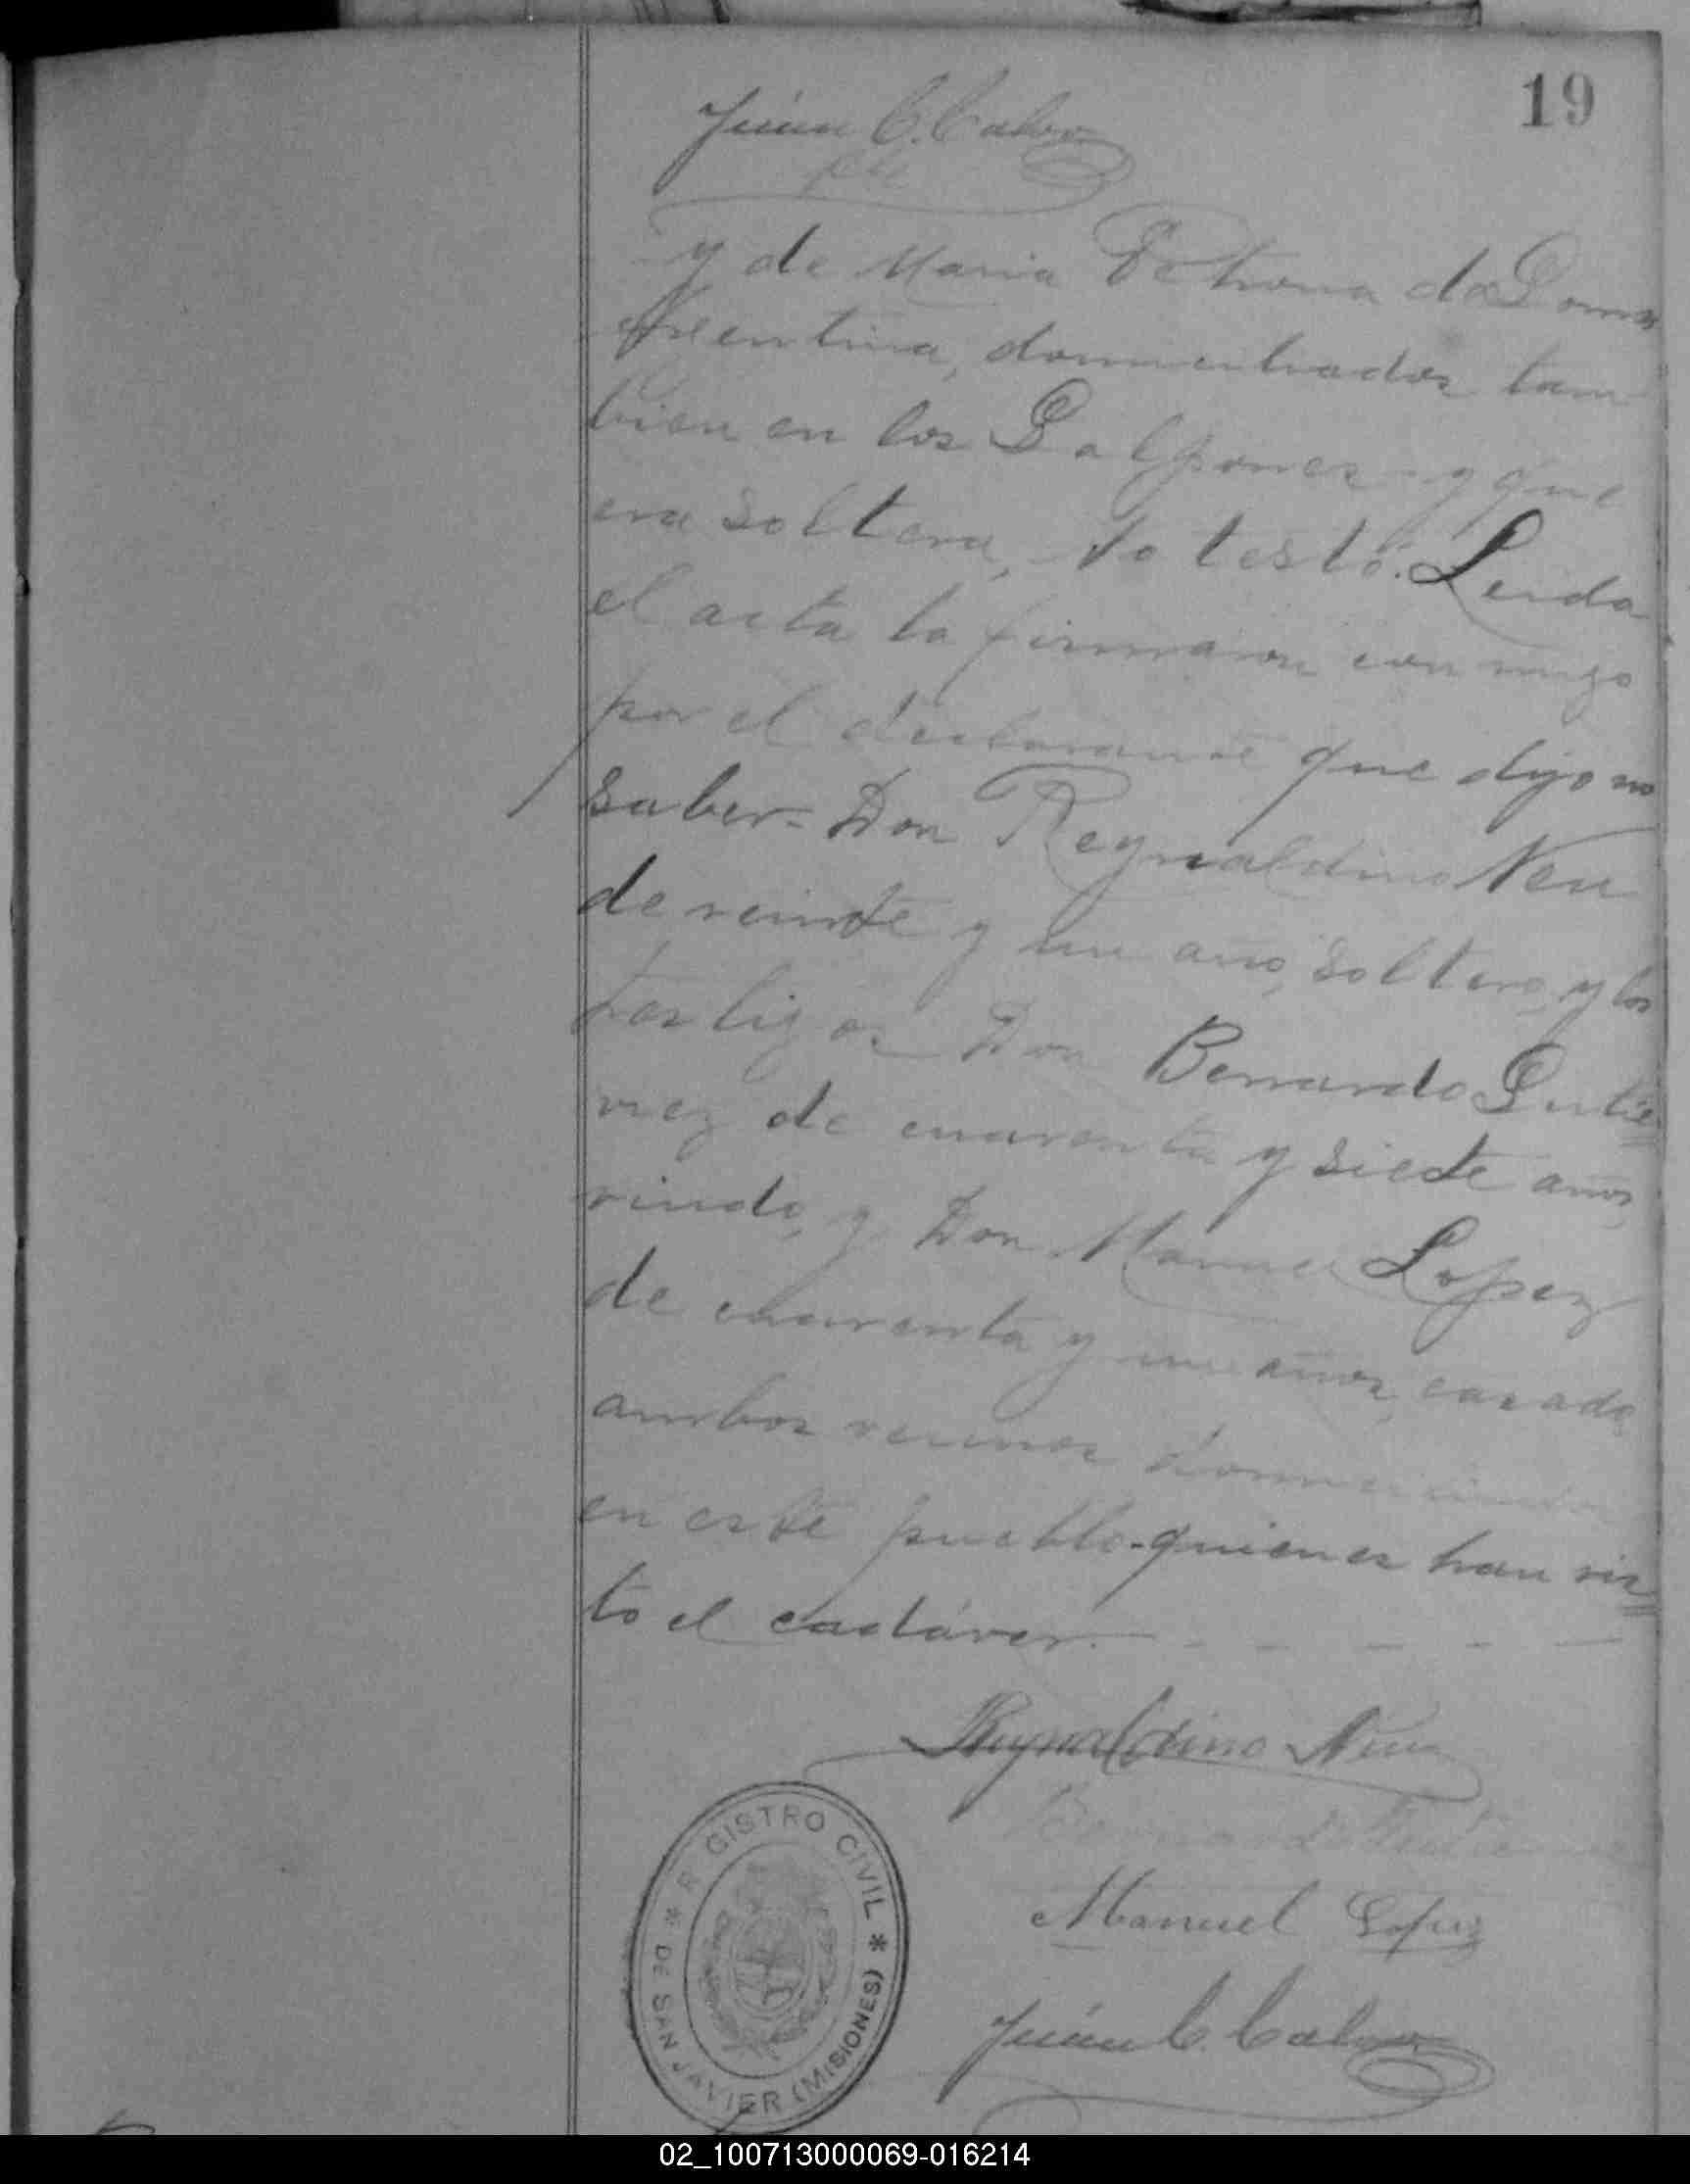 19
Juan C. Calvo
y de Maria Petrona da Gama
argentina, domiciliados tam
bien en los Galpones - y que
era soltera, - No testó. Leida
el acta la firmaron con migo
por el declarante que dijo no
saber - Don Reynaldino Neu
de veinte y un año, soltero, y los
testigos Don Bernardo Gutie=
rrez de cuarenta y siete años,
viudo, y Don Manuel Lopez
de cuarenta y un años, casado,
ambos vecinos domiciliados
en este pueblo - quienes han vis=
to el cadáver. - - - - -
Reynaldino Neu
Bernardo Gutierrez
Manuel Lopez
Juan C. Calvo
REGISTRO CIVIL * DE SAN JAVIER (MISIONES) *
02_100713000069-016214